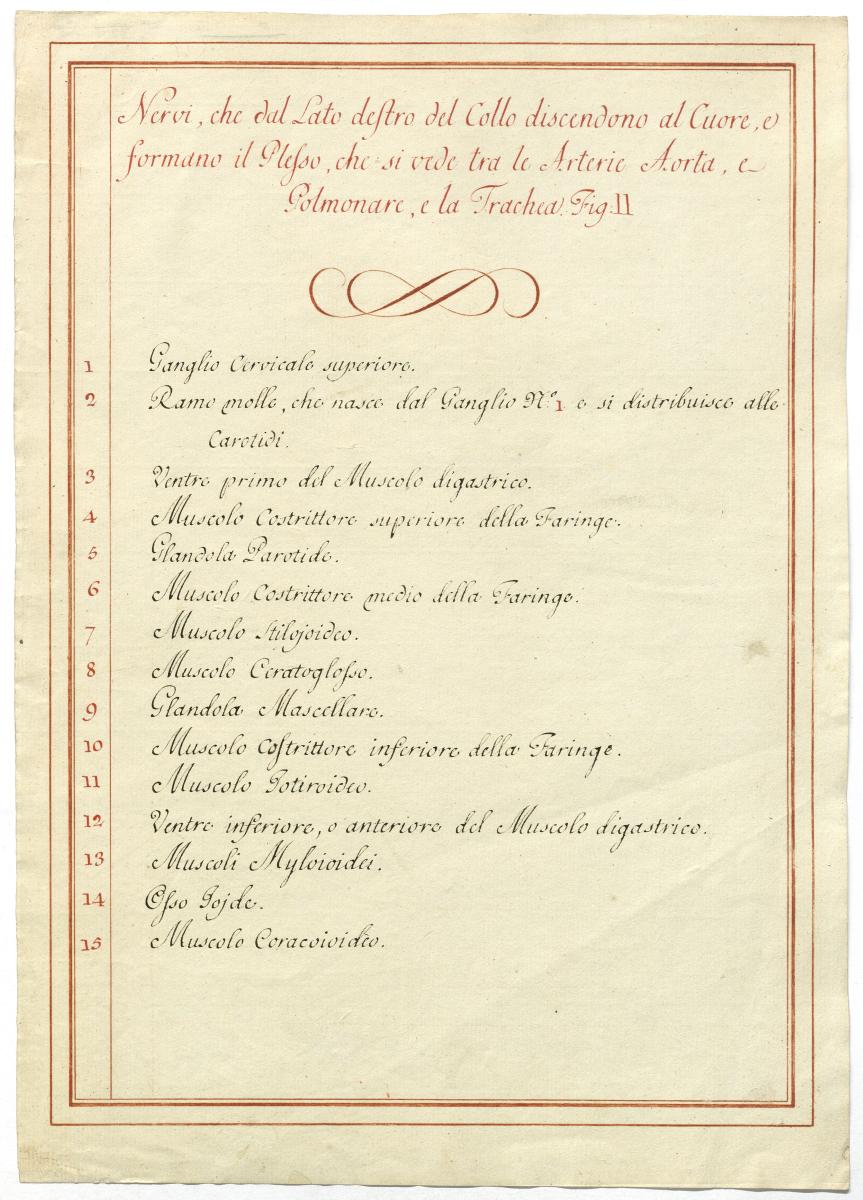 Nervi, che dal Lato deſtro del Collo discendono al Cuore, e
formano il Pleſso, che si vede tra le Arterie Aorta, e
Polmonare, e la Trachea. Fig: 11
1 Ganglio Cervicale superiore.
2 Ramo molle, che nasce dal Ganglio N.º 1 e si distribuisce alle
Carotidi.
3 Ventre primo del Muscolo digastrico.
4 Muscolo Costrittore superiore della Faringe.
5 Glandola Parotide.
6 Muscolo Costrittore medio della Faringe.
7 Muscolo Stilojoideo.
8 Muscolo Ceratogloſso.
9 Glandola Mascellare.
10 Muscolo Coſtrittore inferiore della Faringe.
11 Muscolo Jotiroideo.
12 Ventre inferiore, o anteriore del Muscolo digastrico.
13 Muscoli Myloioidei.
14 Oſso Jojde.
15 Muscolo Coracoioideo.